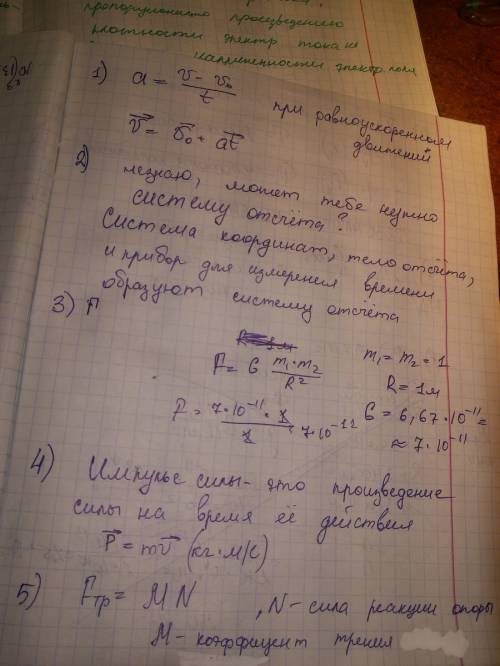 пропорционально произведению
плотности электр тока на
напряженности электр. поля
1) a = (v - v₀)/t при равноускоренном
движений
v⃗ = v⃗₀ + a⃗t
2) незнаю, может тебе нужно
систему отсчёта?
Система координат, тело отсчёта,
и прибор для измерения времени
образуют систему отсчёта
3) П
F = G m₁·m₂/R² m₁ = m₂ = 1
R = 1м
F = 7·10⁻¹¹·1/1 = 7·10⁻¹¹ G = 6,67·10⁻¹¹ =
≈ 7·10⁻¹¹
4) Импульс силы - это произведение
силы на время её действия
P⃗ = mv⃗ (кг·м/с)
5) Fтр = M N , N - сила реакции опоры
M - коэффицент трения